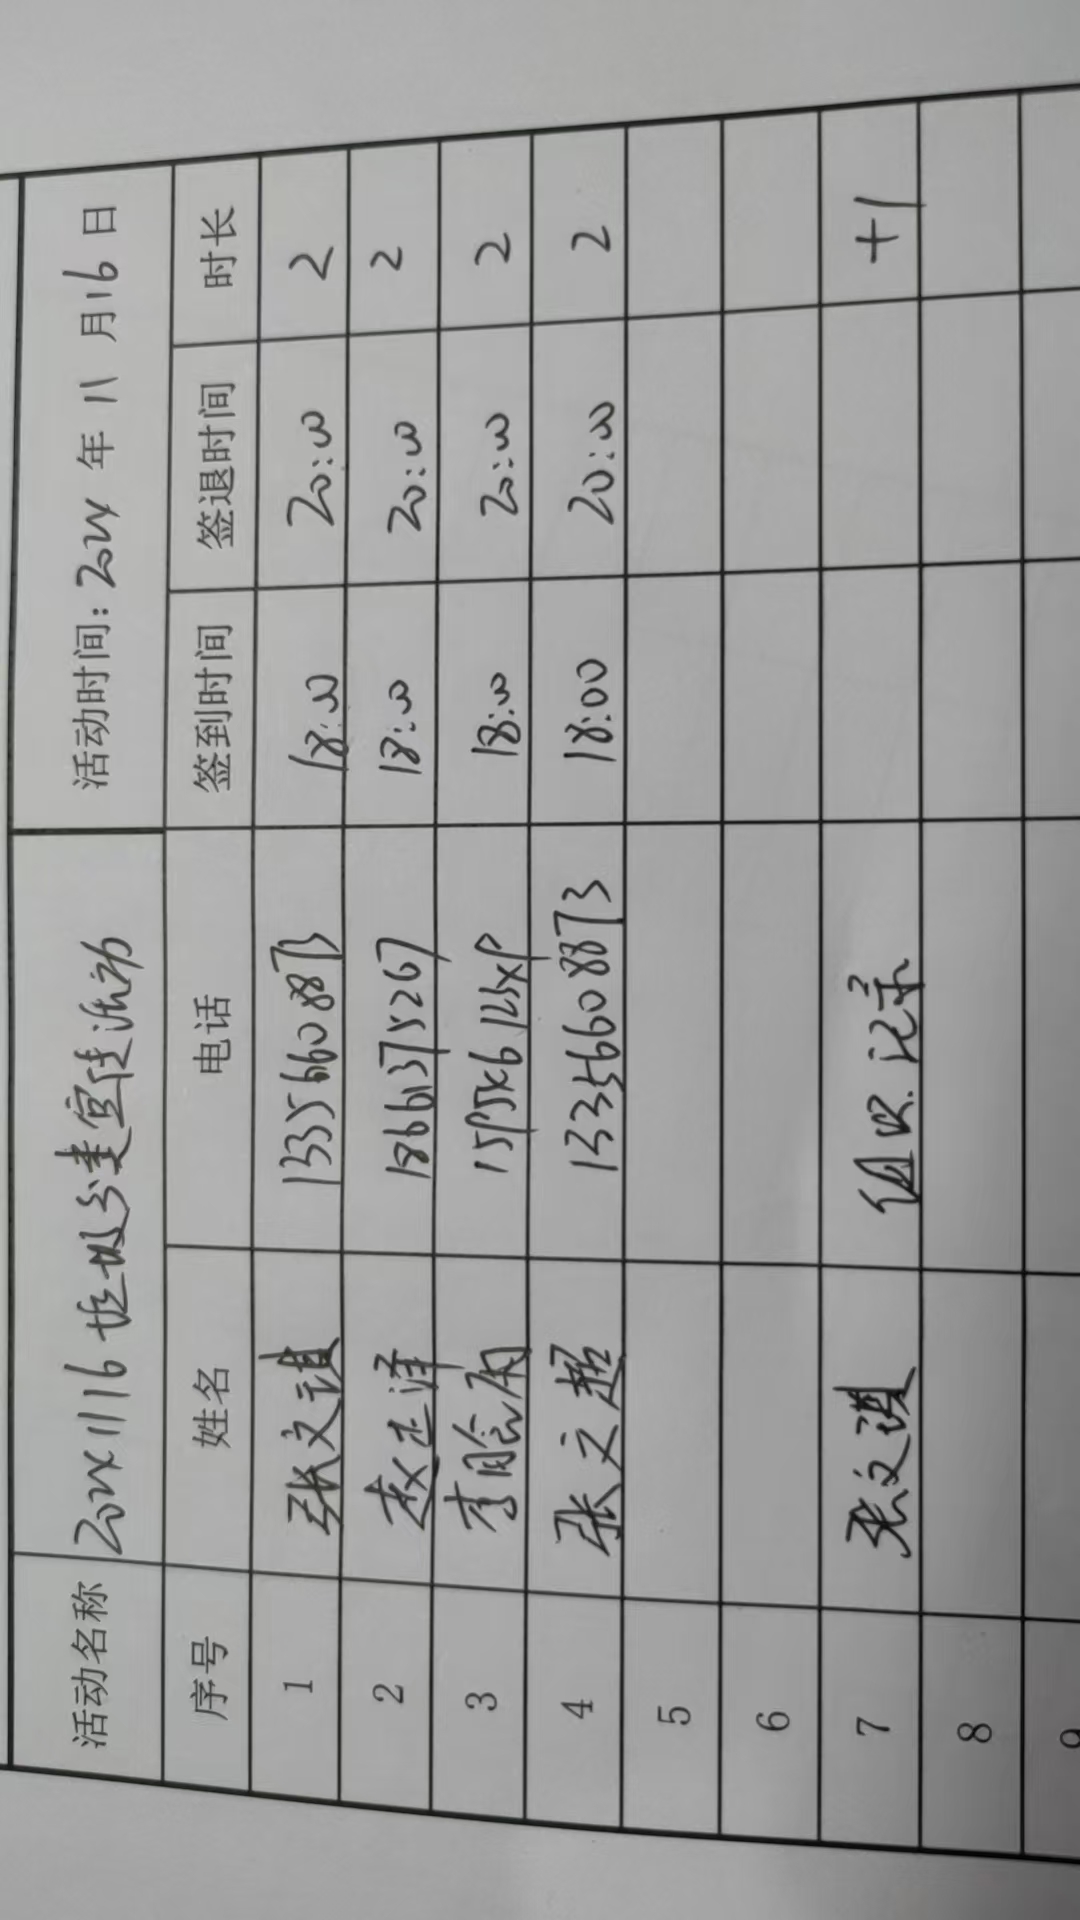 活动名称 20241116垃圾分类宣传活动 活动时间：2024年11月16日
序号 姓名 电话 签到时间 签退时间 时长
1 张文琪 13356608873 18:00 20:00 2
2 赵正洋 18661375267 18:00 20:00 2
3 李 18:00 20:00 2
4 张文超 13356608873 18:00 20:00 2
5
6
7 张文琪 组织.记录 +1
8
9